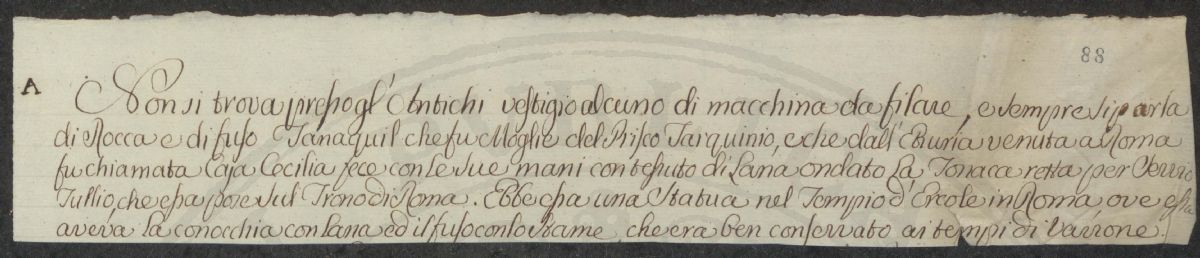 88
A
Non si trova presso gl'Antichi vestigio alcuno di macchina da filare, e sempre si parla
di Rocca e di fuso Tanaquil che fu Moglie del Prisco Tarquinio, e che dall'Etruria venuta a Roma
fu chiamata Caja Cecilia fece con le sue mani contessuto di Lana ondato La Tonaca retta per Servio
Tullio, che essa pose sul Trono di Roma. Ebbe essa una Statua nel Tempio d'Ercole in Roma, ove essa
aveva la conocchia con lana ed il fuso con lo stame, che era ben conservato ai tempi di Varrone.